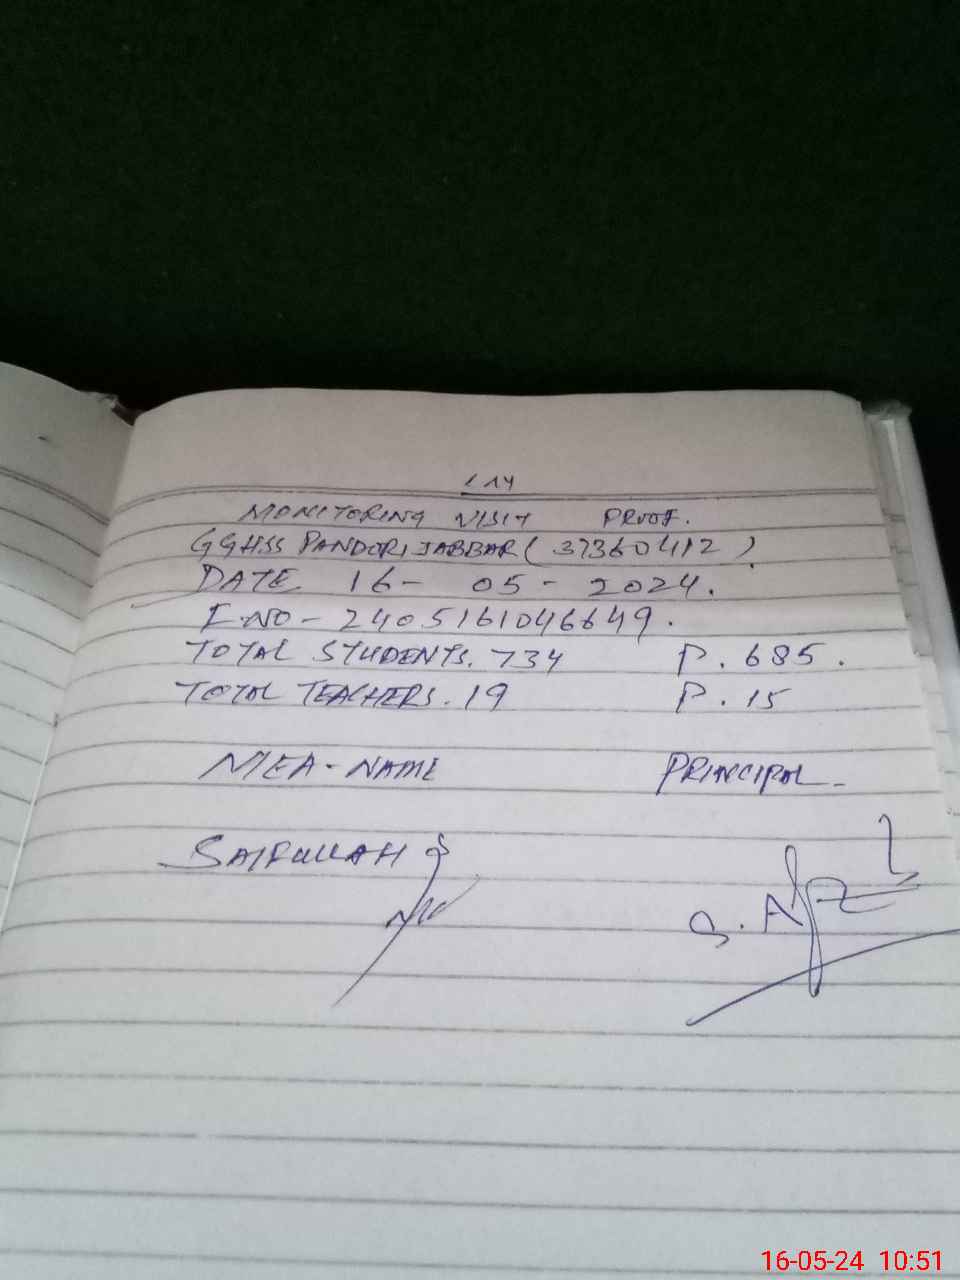 MONITORING VISIT PROOF.
GGHSS PANDORI JABBAR (37360412)
DATE 16- 05- 2024.
E.NO- 2405161046649.
TOTAL STUDENTS. 734 P. 685.
TOTAL TEACHERS. 19 P. 15
MEA-NAME PRINCIPAL-
SAIFULLAH
16-05-24 10:51